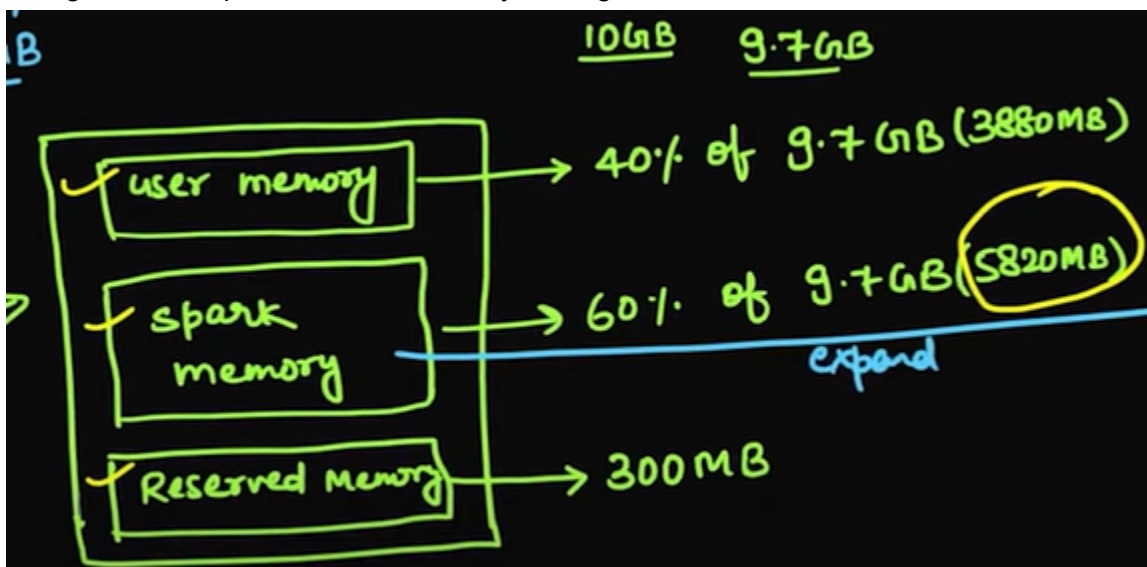 B
10GB 9.7GB
user memory → 40% of 9.7GB (3880MB)
spark memory → 60% of 9.7GB (5820MB)
expand
Reserved Memory → 300MB